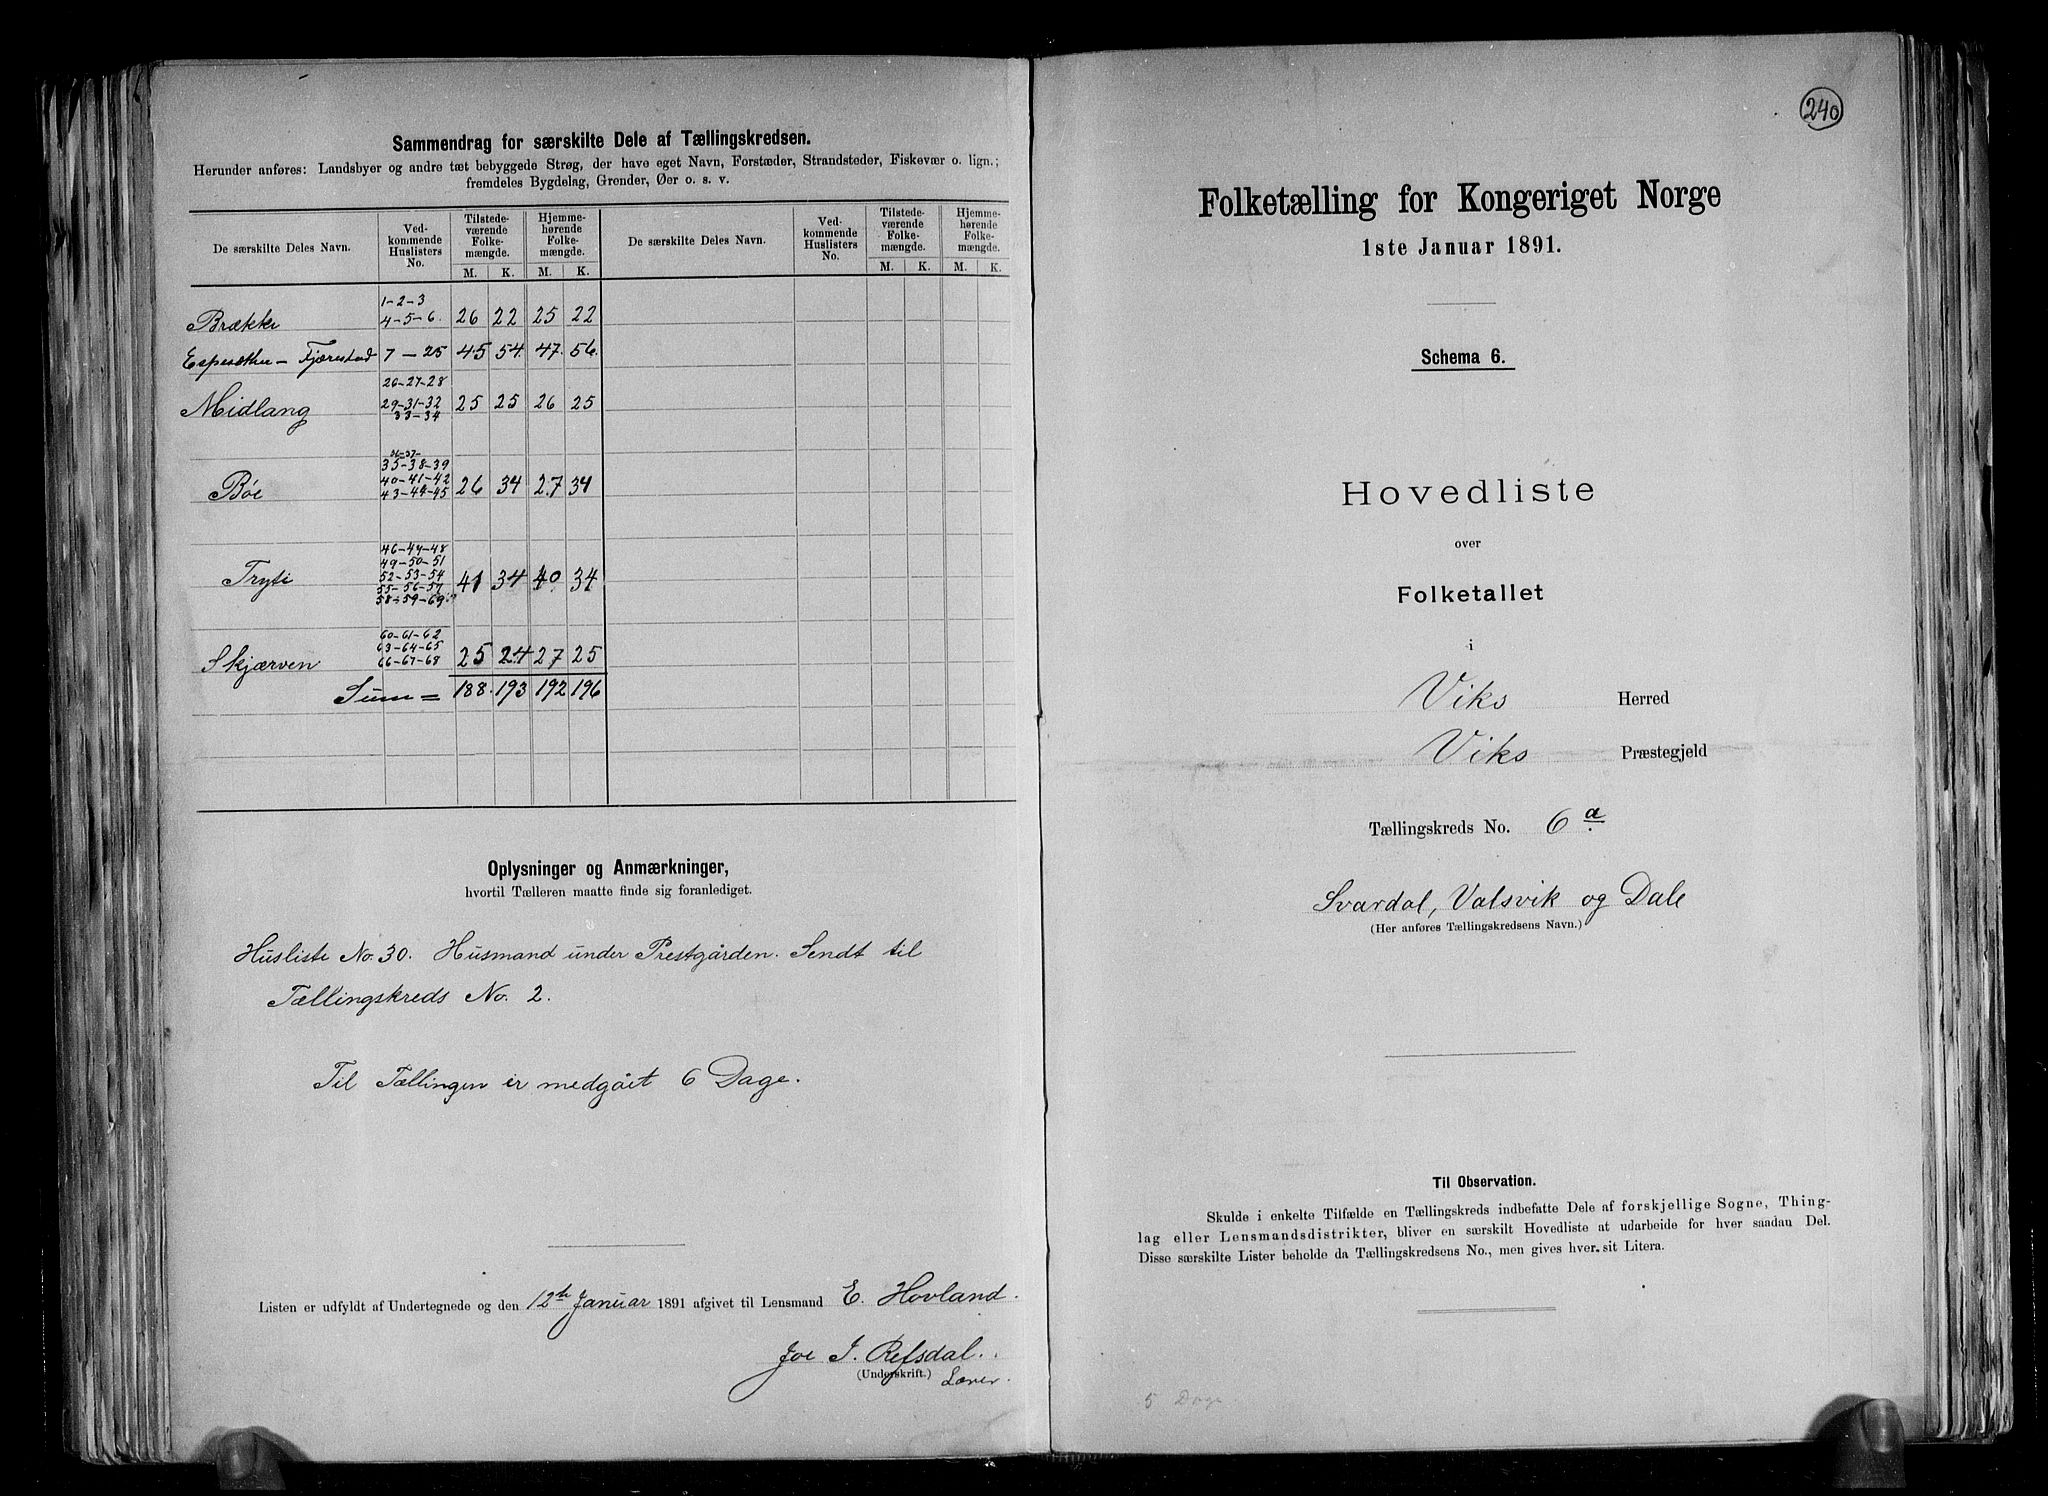 Sammendrag for særskilte Dele af Tællingskredsen.
Herunder anføres: Landsbyer og andre tæt bebyggede Strøg, der have eget Navn, Forstæder, Strandsteder, Fiskevær o. lign.;
fremdeles Bygdelag, Grender, Øer o. s. v.
De særskilte Deles Navn. Ved-kommende Huslisters No. Tilstede-værende Folke-mængde. Hjemme-hørende Folke-mængde. De særskilte Deles Navn. Ved-kommende Huslisters No. Tilstede-værende Folke-mængde. Hjemme-hørende Folke-mængde.
M. K. M. K. M. K. M. K.
1-2-3
Brække 4-5-6. 26 22 25 22
Fjærestad 7 - 25 45 54. 47. 56.
26-27-28
Midlang 29-31-32 25 25 26 25
33-34
36-37-
35-38-39
Bøe 40-41-42 26 34 27 34
43-44-45
46-47-48
49-50-51
Tryti 52-53-54 41 34 40. 34
55-56-57
58-59-69
60-61-62
Skjærven 63-64-65 25 24 27 25
66-67-68
Sum = 188. 193 192 196
Oplysninger og Anmærkninger,
hvortil Tælleren maatte finde sig foranlediget.
Husliste No. 30. Husmand under Prestgården. Sendt til
Tællingskreds No. 2.
Til Tællingen er medgået 6 Dage.
Listen er udfyldt af Undertegnede og den 12te Januar 1891 afgivet til Lensmand E. Hovland.
Joe J. Refsdal.
(Underskrift.) Lærer.
240
Folketælling for Kongeriget Norge
1ste Januar 1891.
Schema 6.
Hovedliste
over
Folketallet
i
Viks Herred
Viks Præstegjeld
Tællingskreds No. 6 a.
Svardal, Valsvik og Dale
(Her anføres Tællingskredsens Navn.)
Til Observation.
Skulde i enkelte Tilfælde en Tællingskreds indbefatte Dele af forskjellige Sogne, Thing-
lag eller Lensmandsdistrikter, bliver en særskilt Hovedliste at udarbeide for hver saadan Del.
Disse særskilte Lister beholde da Tællingskredsens No., men gives hver sit Litera.
5 Dage